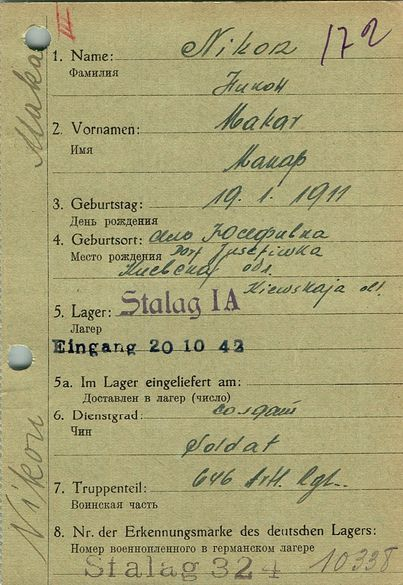 172
Makar
1. Name: Nikon
Фамилия Никон
2. Vornamen: Makar
Имя Макар
3. Geburtstag: 19. 1. 1911
День рождения
4. Geburtsort: село Юсефивка
Место рождения Dorf Jusefiwka
Киевская обл.
Kiewskaja obl.
5. Lager: Stalag IA
Лагерь
Eingang 20 10 42
5a. Im Lager eingeliefert am:
Доставлен в лагерь (число)
6. Dienstgrad: солдат
Чин
Soldat
7. Truppenteil: 646 Artl. Rgt.
Воинская часть
Nikon
8. Nr. der Erkennungsmarke des deutschen Lagers:
Номер военнопленного в германском лагере
Stalag 324 10338